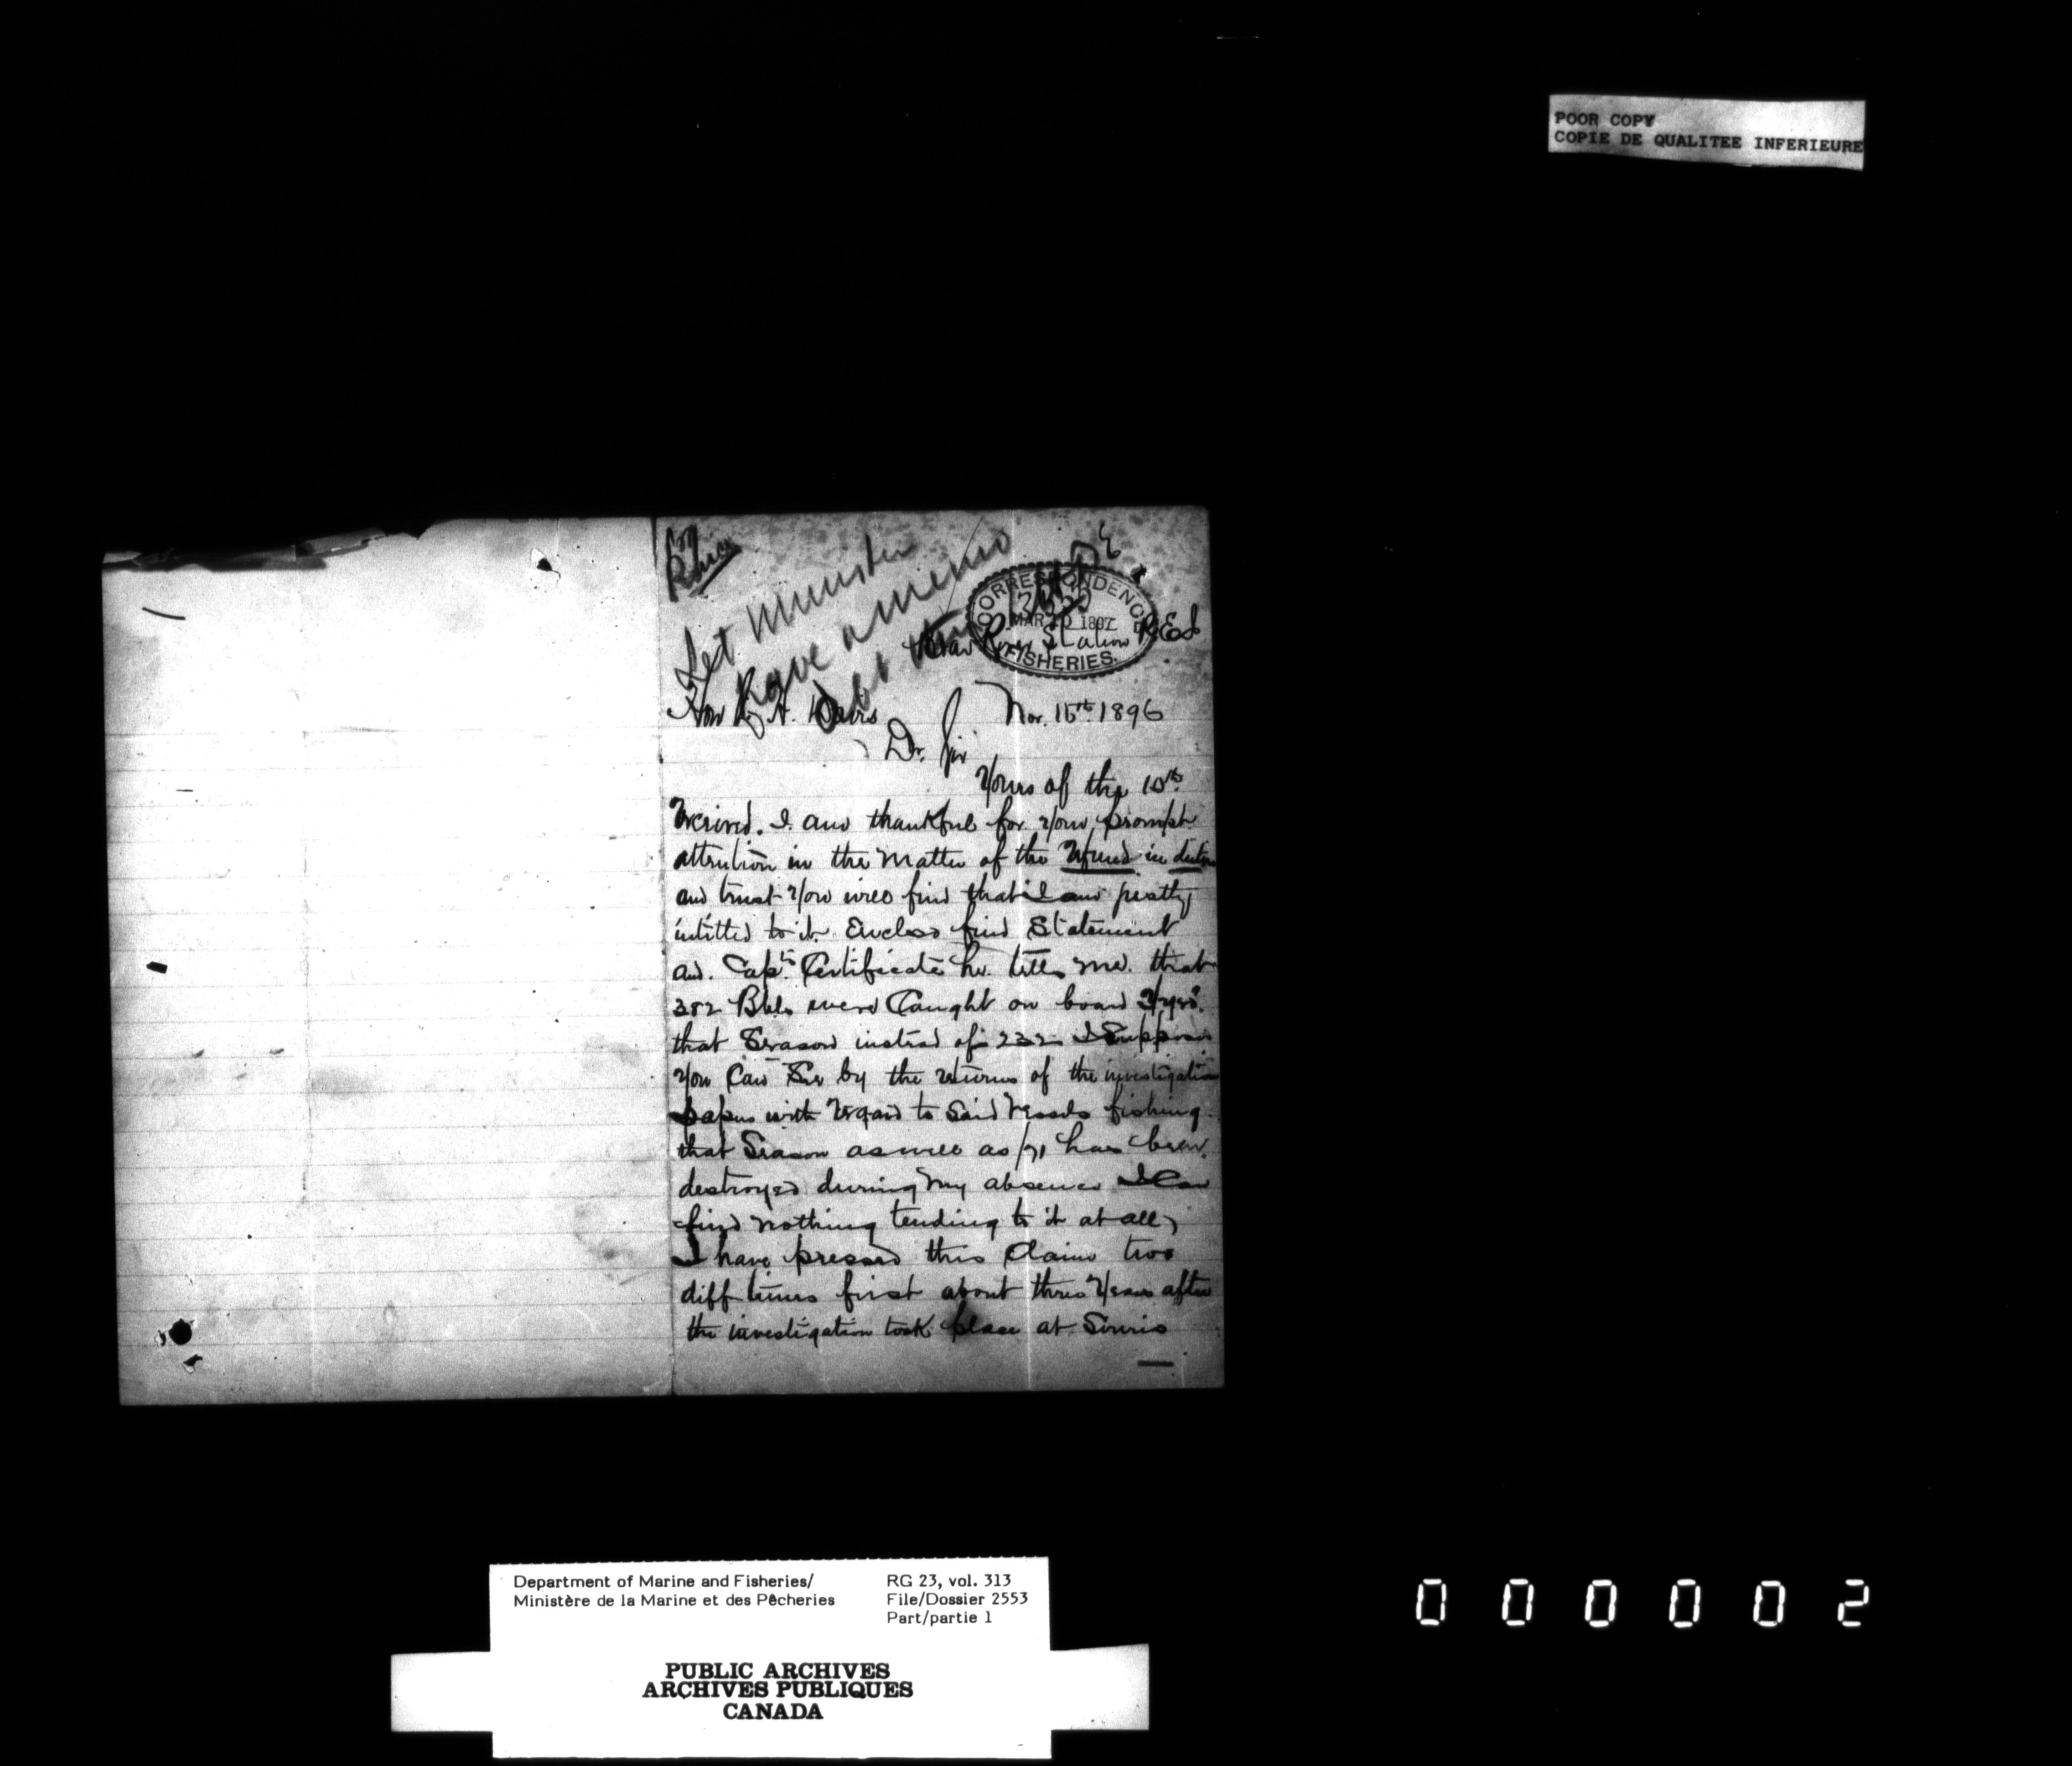 POOR COPY
COPIE DE QUALITEE INFERIEURE
Let Minister
have a memo
CORRESPONDENCE
MAR 1897
FISHERIES.
Bear River Station P.E.I
Hon L. H. Davis
Nov. 15th 1896
Dr. Sir
Yours of the 10th
received. I am thankful for your prompt
attention in the matter of the refund in duties
and trust you will find that I am justly
intitled to it. Enclose find Statement
and. Capts Certificate he. tells me. that
382 Bbls were Caught on board
that Season instead of 232 I Suppose
you Can See by the returns of the investigation
papers with regard to Said Vessels fishing.
that Season as well as /71 has been.
destroyed during my absence I Can
find nothing tending to it at all,
I have pressed this Claim two
diff times first about three years after
the investigation took place at Souris
Department of Marine and Fisheries/
Ministère de la Marine et des Pêcheries
RG 23, vol. 313
File/Dossier 2553
Part/partie 1
PUBLIC ARCHIVES
ARCHIVES PUBLIQUES
CANADA
000002